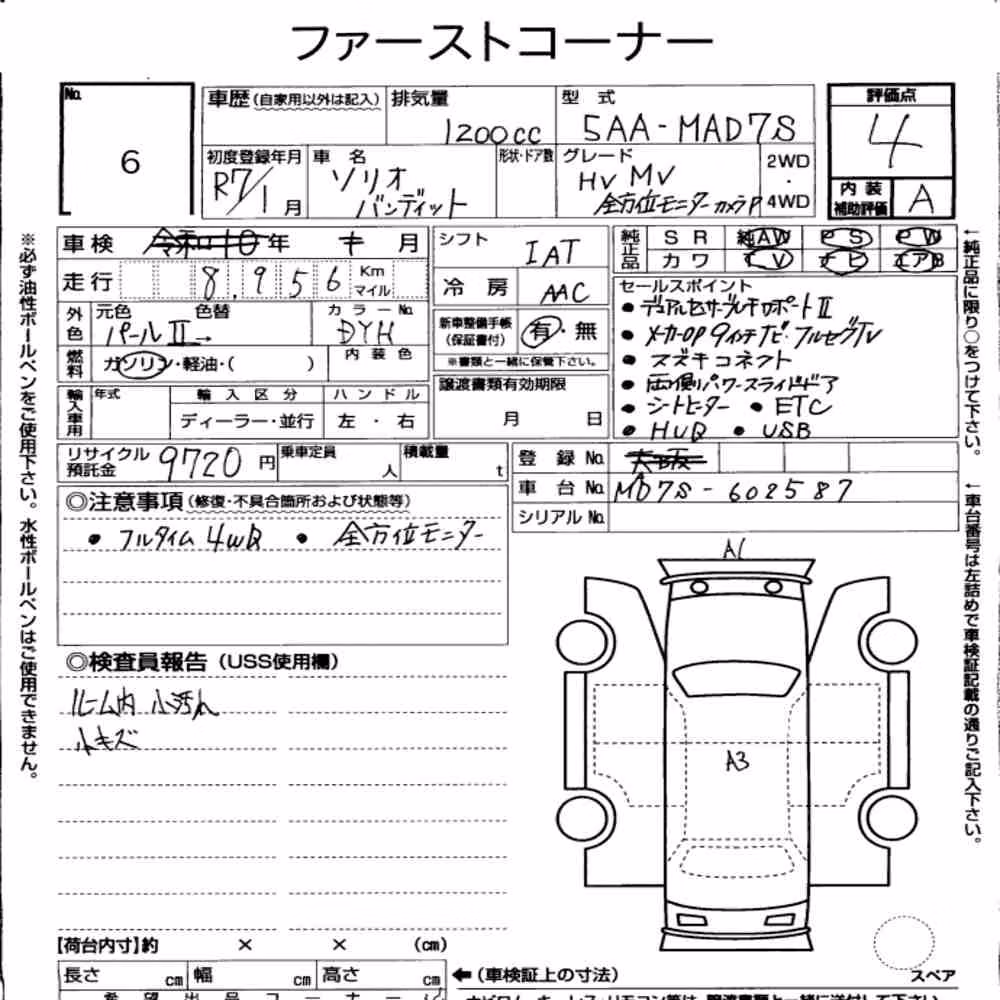 ファーストコーナー
No.
6
車歴(自家用以外は記入)
排気量
1200cc
型 式
5AA-MAD7S
評価点
4
初度登録年月
R7/1月
車 名
ソリオ
バンディット
形状・ドア数
グレード
HV MV
全方位モニターカメラP
2WD
・
4WD
内 装
補助評価
A
車 検
令和10年
月
シフト
IAT
純正品
S R
純AW
P S
P W
カワ
T V
ナビ
エアB
走行
8,956
Km
マイル
冷 房
AAC
セールスポイント
• デュアルセンサーブレーキサポートⅡ
• メーカーOP 9インチナビ・フルセグTV
• スズキコネクト
• 両側パワースライドドア
• シートヒーター • ETC
• HUD • USB
外色
元色
色替
カラーNo.
パールⅡ→
新車整備手帳
(保証書付)
有・無
※書類と一緒に保管下さい。
燃料
ガソリン・軽油・( )
内 装 色
輸入車用
年式
輸 入 区 分
ハ ン ド ル
ディーラー・並行
左 ・ 右
譲渡書類有効期限
月 日
リサイクル
預託金
9720円
乗車定員
人
積載量
t
登 録 No.
大阪
車 台 No.
MD7S-602587
シリアル No.
◎注意事項(修復・不具合箇所および状態等)
• フルタイム 4WD • 全方位モニター
◎検査員報告(USS使用欄)
ルーム内 小汚れ
小キズ
A1
A3
【荷台内寸】約 × × (cm)
長さ cm 幅 cm 高さ cm
←(車検証上の寸法)
スペア
希 望 出 品 コ ー ナ ー
※必ず油性ボールペンをご使用下さい。水性ボールペンはご使用できません。
←純正品に限り○をつけて下さい。
←車台番号は左詰めで車検証記載の通りご記入下さい。